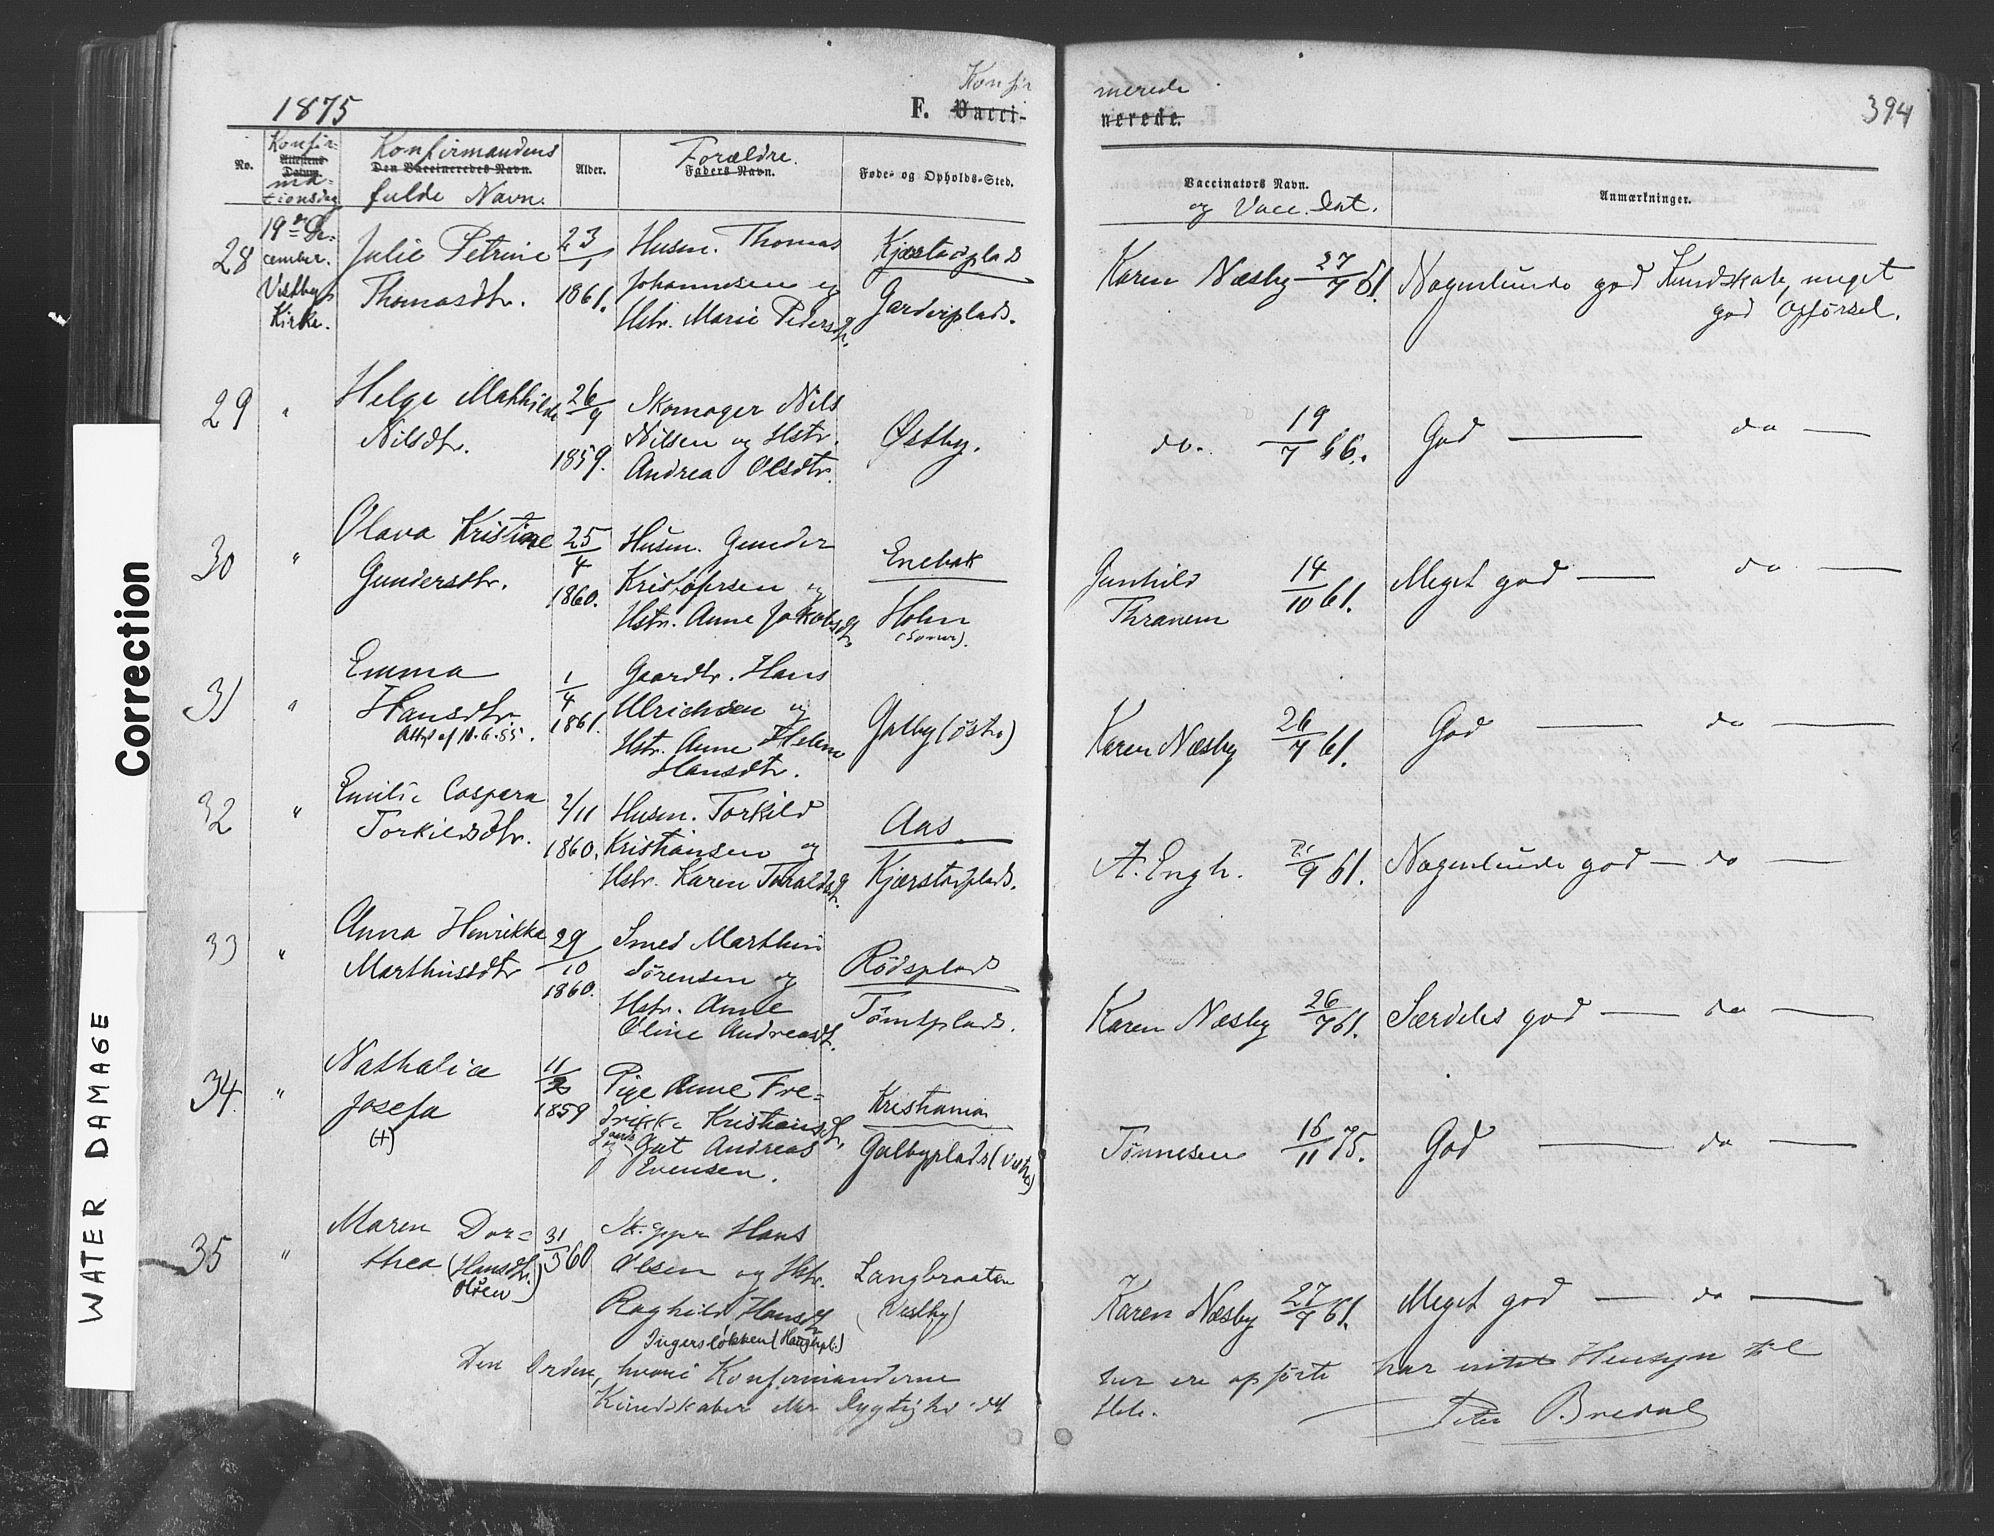 1875
F. Vacci-
Konfir
merede
nerede.
394
No.
Konfir-
Attestens
Datum.
ma-
tionsdag
Konfirmandens
Den Vaccineredes Navn.
fulde Navn.
Alder.
Forældre.
Faders Navn.
Føde- og Opholds-Sted.
Vaccinators Navn.
og Vacc. Dat.
Anmærkninger.
28
19de De-
cember.
Vestby
Kirke.
Julie Petrine
Thomasdtr.
23/1
1861.
Husm. Thomas
Johannesen og
Hstr. Marie Pedersdtr.
Kjærstadplads
Garderplads.
Karen Næsby 27/7 61.
Nogenlunde god Kundskab, meget
god Opførsel.
29
"
Helge Mathilde
Nilsdtr.
26/9
1859.
Skomager Nils
Nilsen og Hstr.
Andrea Olsdtr.
Østby.
do. 19/7 66.
God — do —
30
"
Olava Kristine
Gundersdtr.
25/4
1860.
Husm. Gunder
Kristofersen og
Hstr. Anne Jakobsdtr.
Enebak
Holm
(Soner).
Gunhild
Thranem
14/10 61.
Meget god — do —
31
"
Emma
Hansdtr.
Att. af 11.6.55.
1/4
1861.
Gaardbr. Hans
Ulrichsen og
Hstr. Anne Helene
Hansdtr.
Galby (østre)
Karen Næsby 26/7 61.
God — do —
32
"
Emilie Caspara
Torkildsdtr.
2/11
1860.
Husm. Torkild
Kristiansen og
Hstr. Karen Thoraldsdtr.
Aas
Kjærstadplads.
A. Engh. 21/9 61.
Nogenlunde god — do —
33
"
Anna Henrikka
Marthinsdtr
29/10
1860.
Smed Marthin
Sørensen og
Hstr. Anne
Oline Andreasdt.
Rødsplads
Tømtplads.
Karen Næsby 26/7 61.
Særdeles god — do —
34.
"
Nathalia
Josefa
(+)
11/2
1859
Pige Anne Fre-
drikke Kristiansdtr.
og Gut Andreas
Evensen.
Kristiania
Galbyplads (vestre)
Tønnesen 16/11 75.
God — do —
35
"
Maren Dor-
thea (Hansdtr.)
Olsen
31/5 60
Skipper Hans
Olsen og Hstr.
Raghild Hansdtr
Ingersløkken
Langbraaten
(Vestby)
Karen Næsby 27/7 61.
Meget god — do —
Den Orden, hvori Konfirmanderne
her ere opførte har intet Hensyn til
Kundskaber eller Dygtighed
Peter Bredal
Correction
WATER DAMAGE